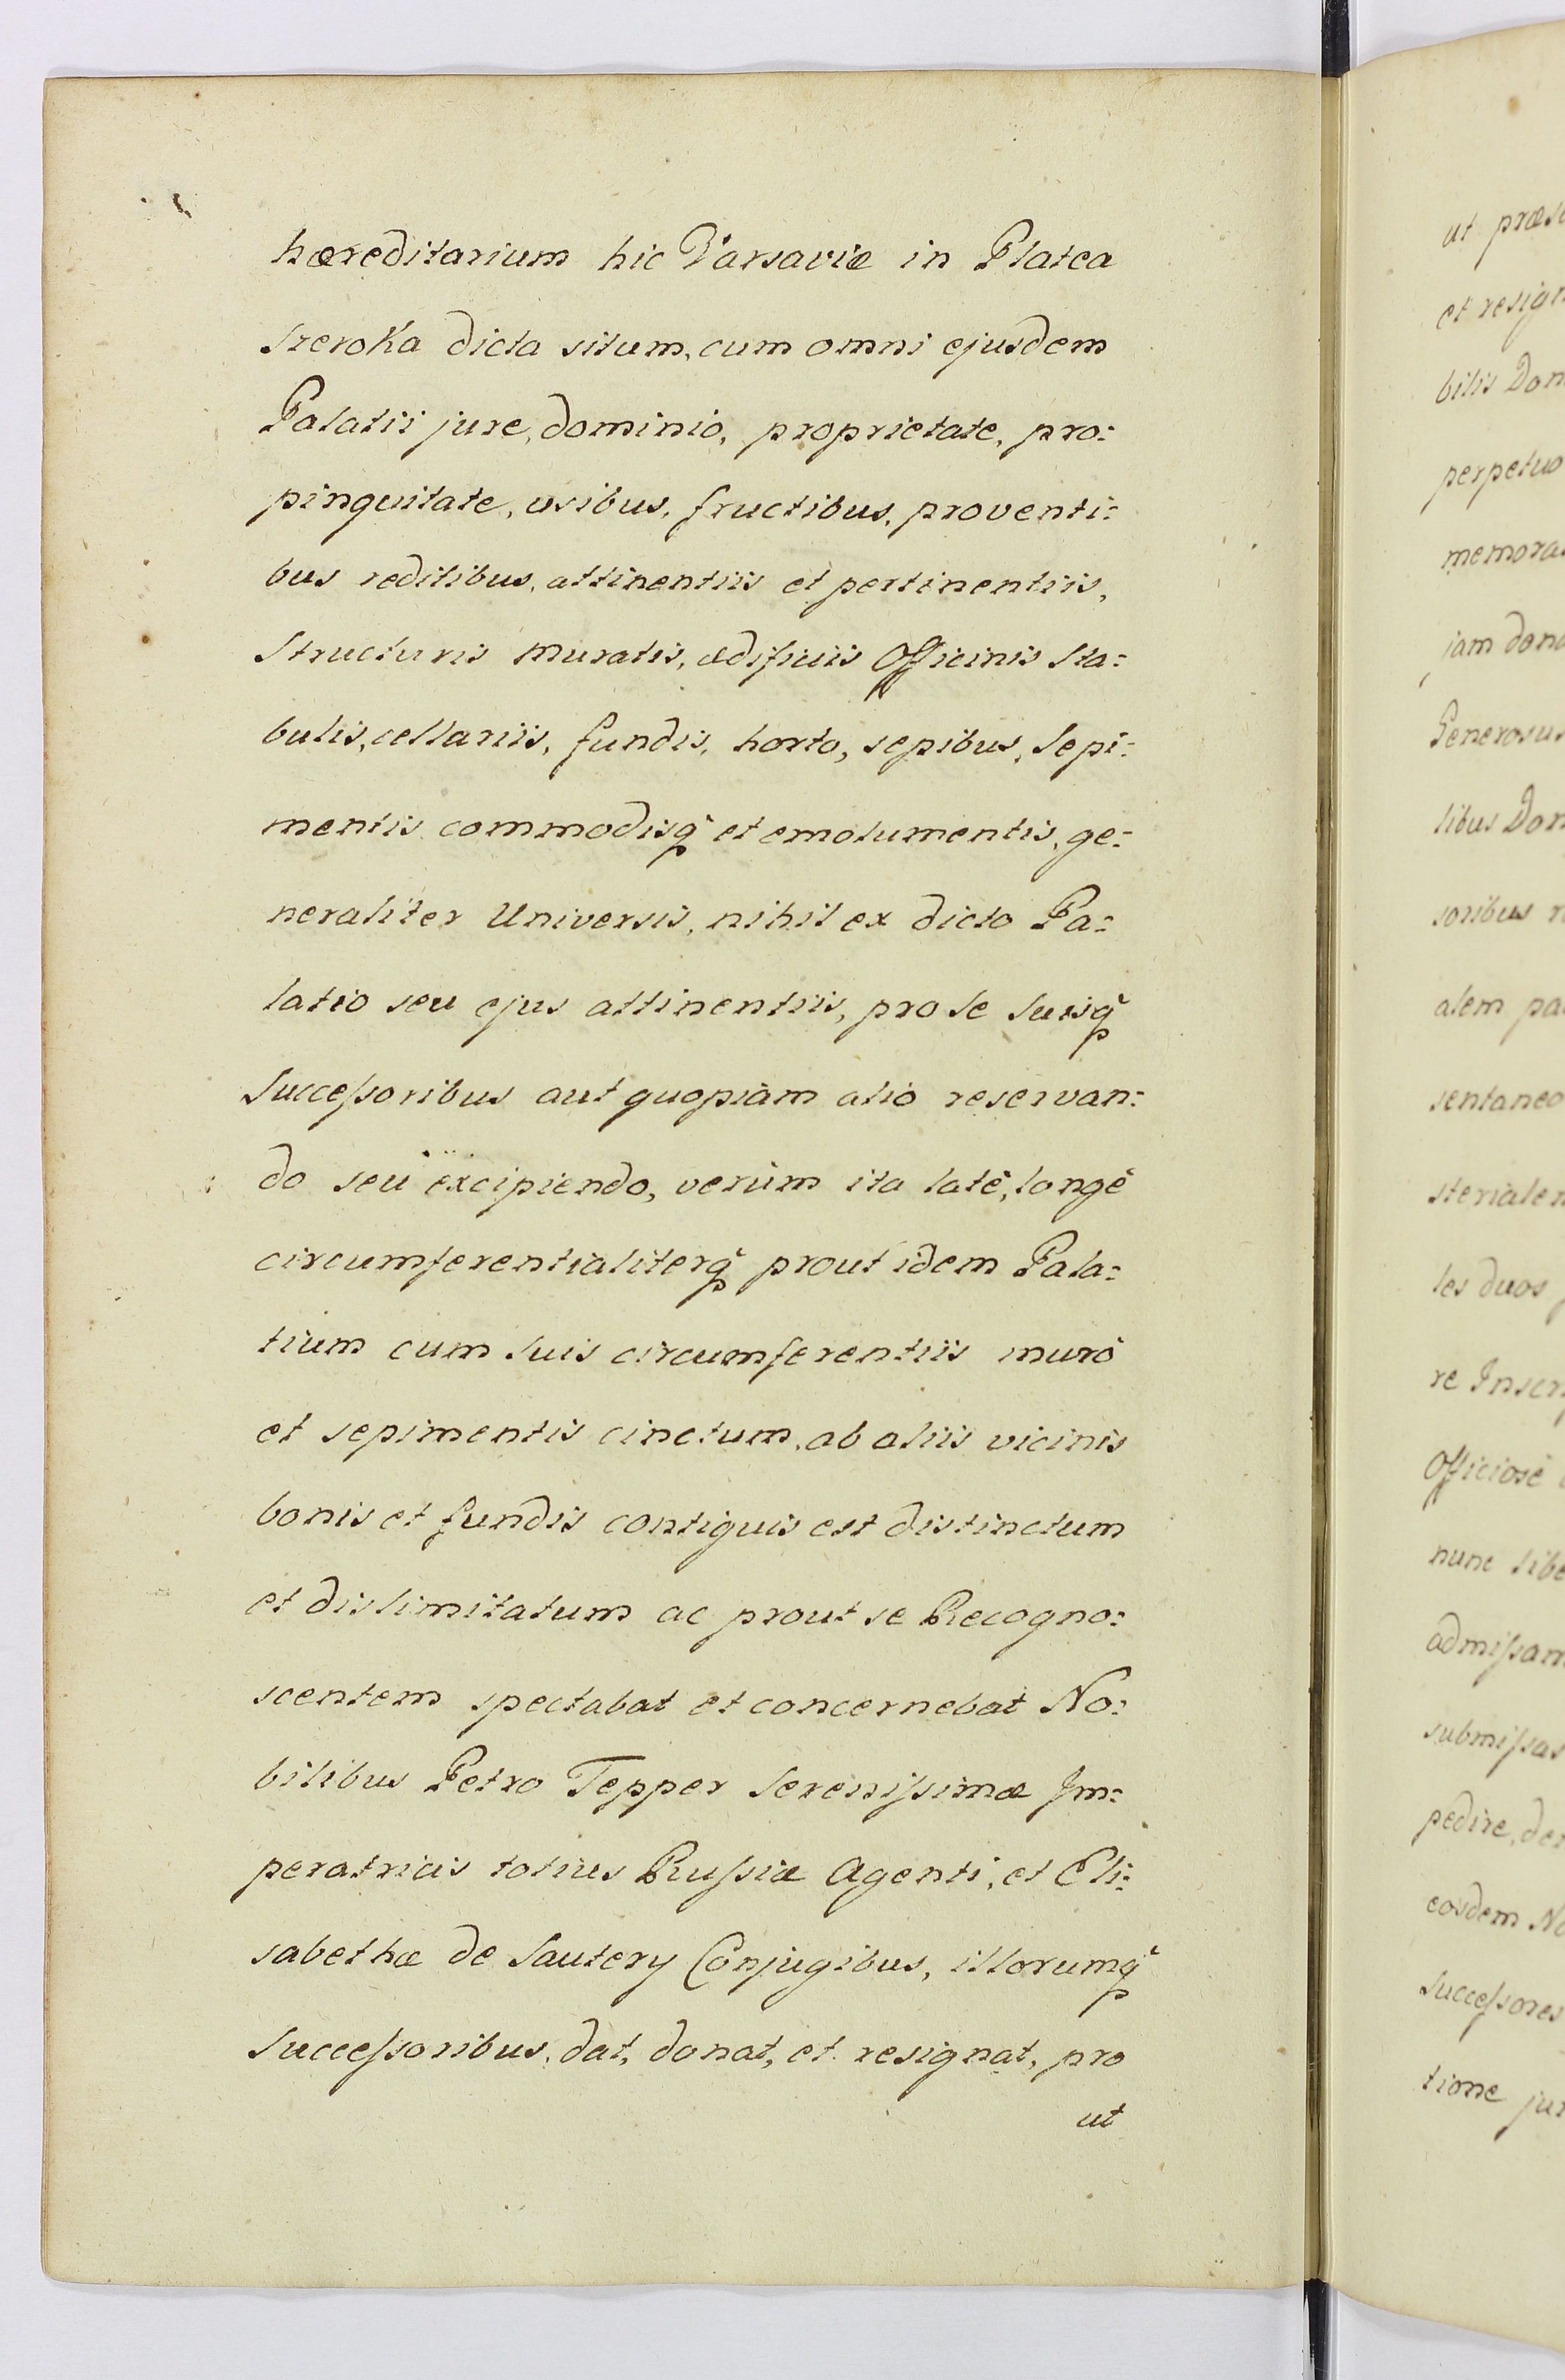 hæreditarium hic Varsaviæ in Platea
Szeroka dicta situm, cum omni ejusdem
Palatii jure, dominio, proprietate, pro:
pinquitate, usibus, fructibus, proventi:
bus reditibus, attinentiis et pertinentiis,
Structuris muratis, ædificiis Officinis Sta:
bulis, cellariis, fundis, horto, sepibus, Sepi:
mentis commodisq̃ et emolumentis, ge:
neraliter Universis, nihil ex dicto Pa:
latio seu ejus attinentiis, pro Se Suisq̃
Succeſsoribus aut quopiam alio reservan:
do seu excipiendo, verùm ita latè, longè
circumferentialiterq̃ prout idem Pala:
tium cum Suis circumferentiis murô
et sepimentis cinctum, ab aliis vicinis
bonis et fundis contiguis est distinctum
et dislimitatum ac prout se Recogno:
scentem spectabat et concernebat No:
bilibus Petro Tepper Sereniſsimæ Im:
peratricis totius Ruſsiæ Agenti, et Eli:
sabethæ de Sautery Conjugibus, illorumq̃
Succeſsoribus, dat, donat, et resignat, pro
ut
ut
et
bilis
perpetuo
jam
Generosus
libus
soribus
alem
sentaneo
les duos
re
Officiosè
nunc
admiſsam
submiſsas
pedire,
eosdem
Succeſsores
tione